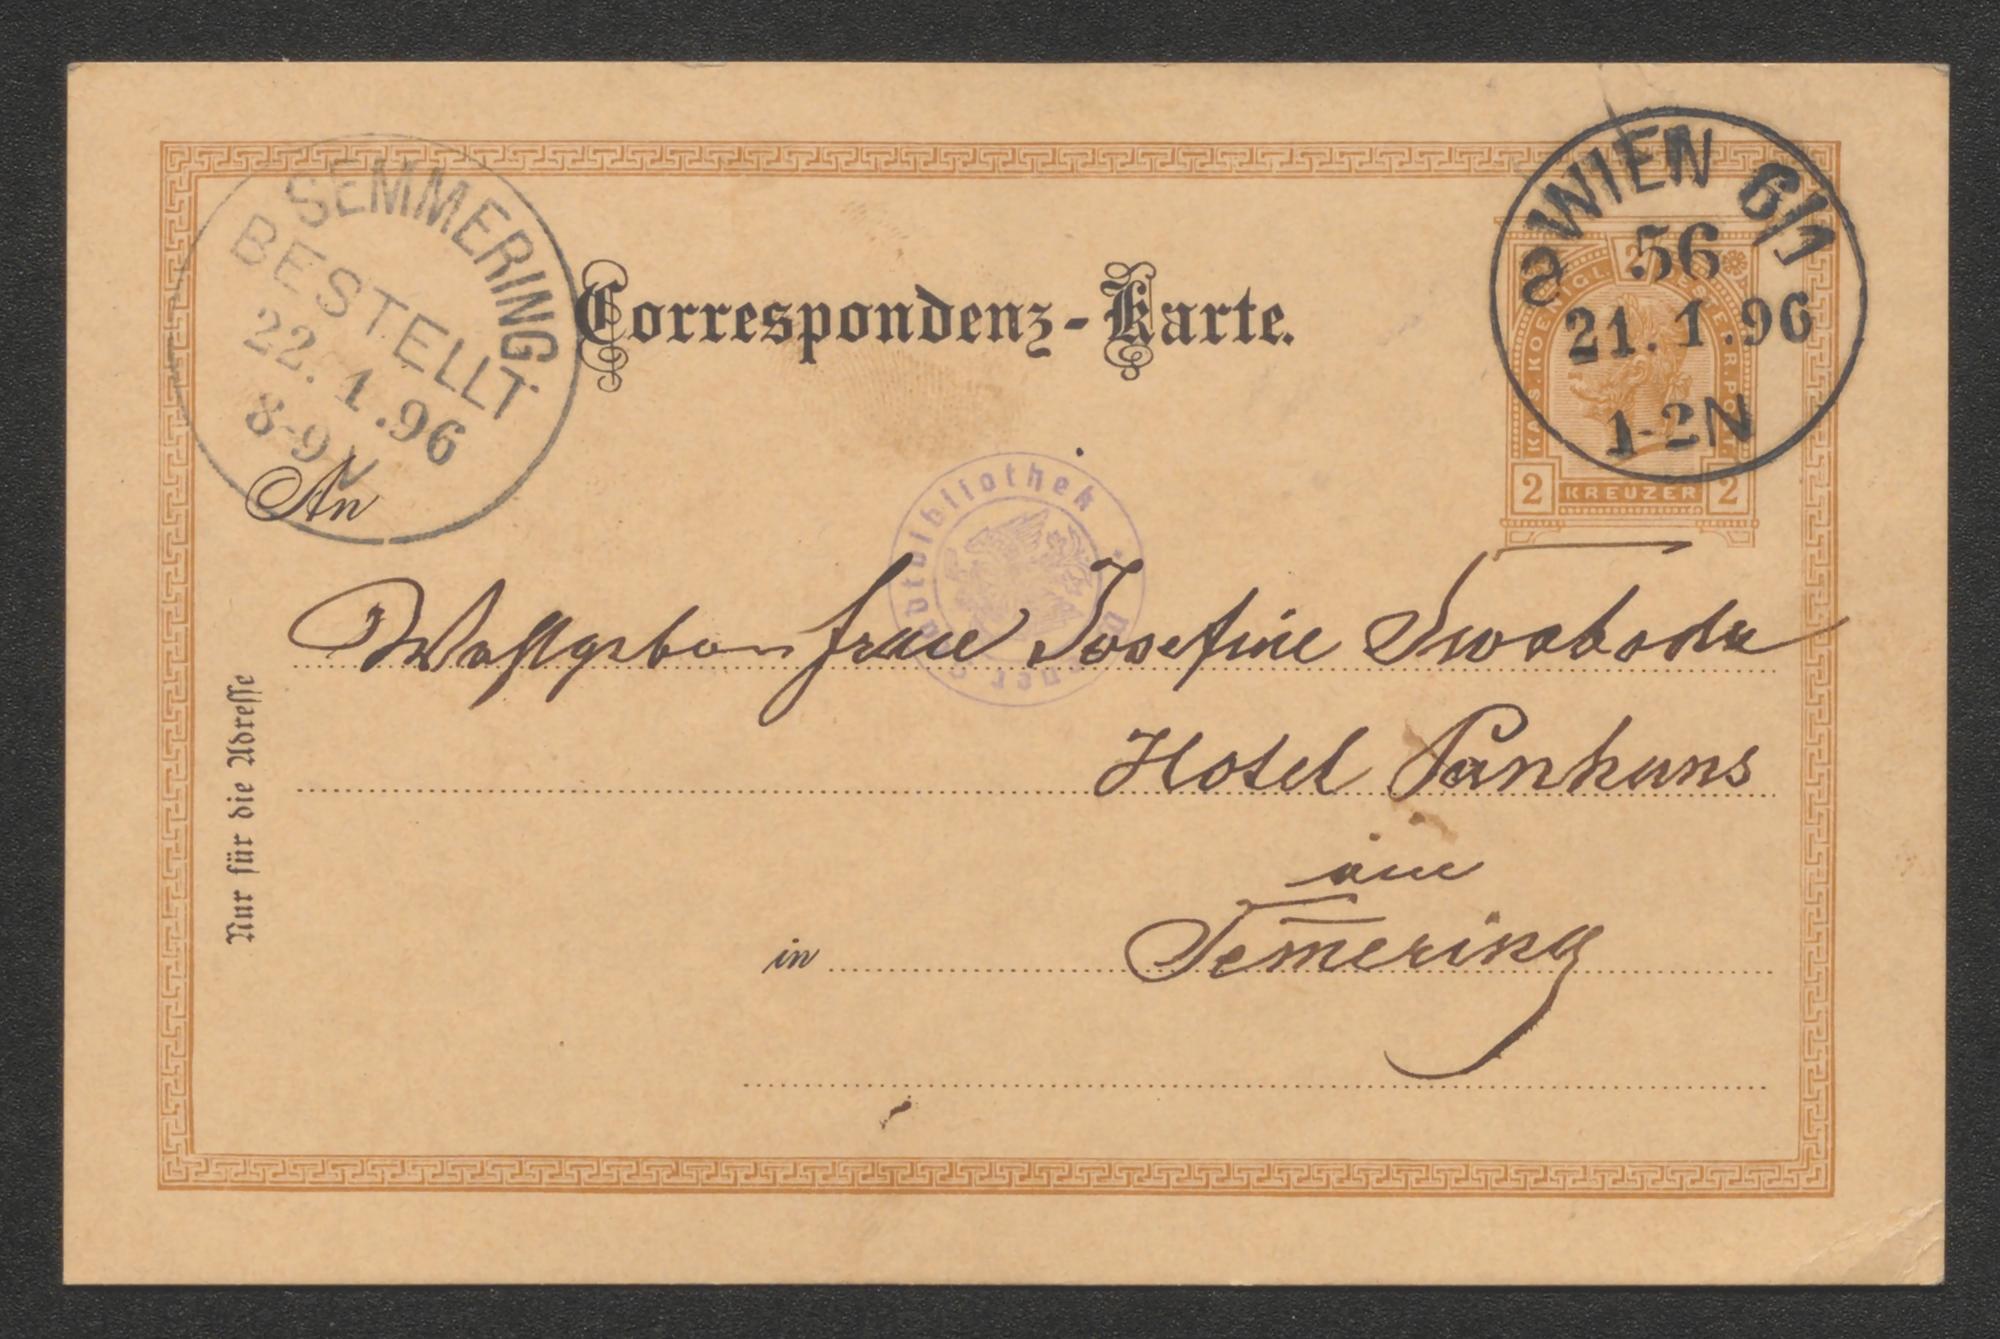 SEMMERING.
BESTELLT
22.1.96
8-9 V
WIEN 6/1
56
21.1.96
1-2N
2
KAIS. KOENIGL. OESTERR. POST.
2 KREUZER 2
Correspondenz-Karte.
An
Stadtbibliothek
Wohlgeborn Frau Josefine Swoboda
Hotel Panhans
am
Nur für die Adresse
in Sem̅ering